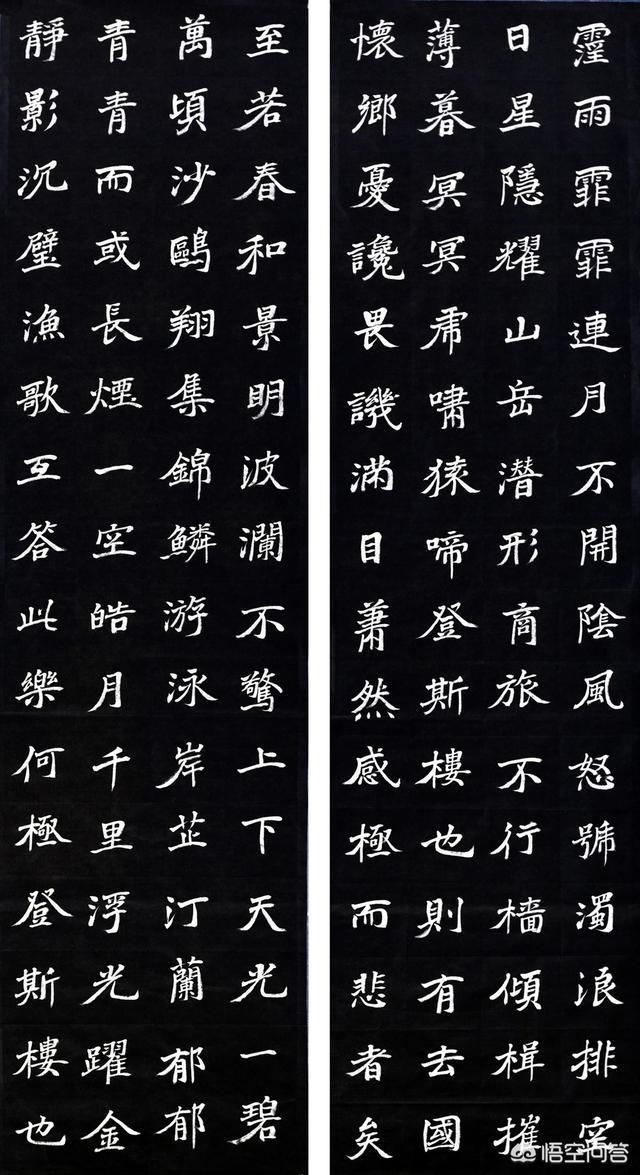 霪雨霏霏連月不開陰風怒號濁浪排空
日星隱耀山岳潛形商旅不行檣傾楫摧
薄暮冥冥虎嘯猿啼登斯樓也則有去國
懷鄉憂讒畏譏滿目蕭然感極而悲者矣
至若春和景明波瀾不驚上下天光一碧
萬頃沙鷗翔集錦鱗游泳岸芷汀蘭郁郁
青青而或長煙一空皓月千里浮光躍金
靜影沉璧漁歌互答此樂何極登斯樓也
悟空问答